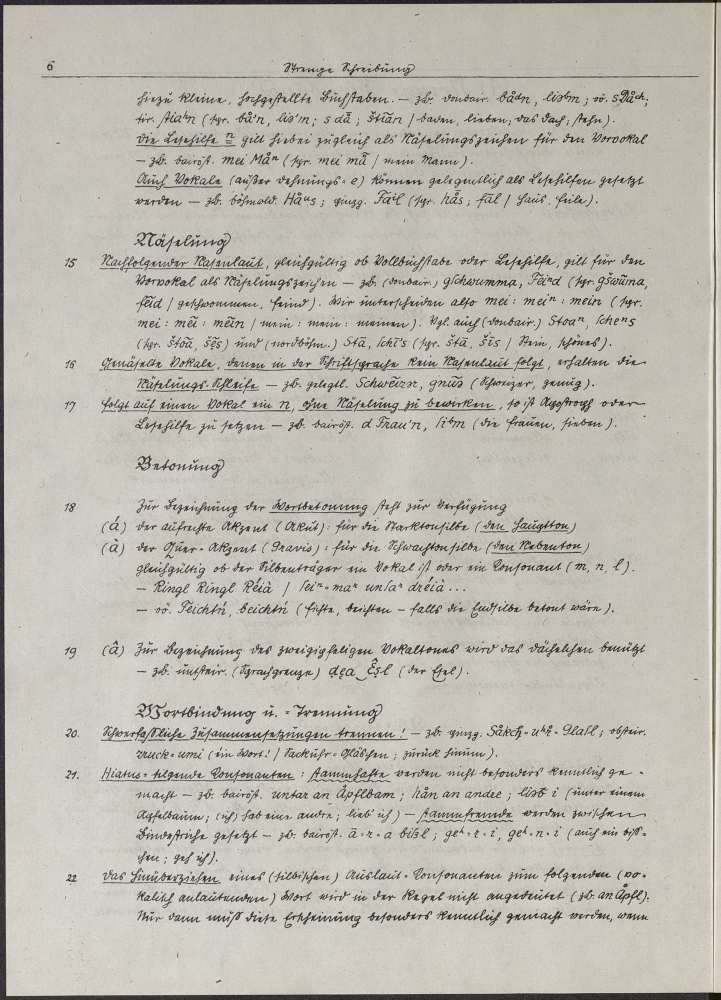 6 Strenge Schreibung
hiezu kleine, hochgestellte Buchstaben. — zb. donbair.
(spr. / baden, lieben, das Dach, stehn).
Die Lesehilfe n gilt hiebei zugleich als Näselungszeichen für den Vorvokal
— zb. bairöst. mei Måⁿ (spr. mei mã / mein Mann).
Auch Vokale (außer Dehnungs-e) können gelegentlich als Lesehilfen gesetzt
werden — zb. böhmwld. / Haus, Feile).
Näselung
15 Nachfolgender Nasenlaut, gleichgültig ob Vollbuchstabe oder Lesehilfe, gilt für den
Vorvokal als Näselungszeichen — zb. (donbair.) gschwumma, Feiⁿd (spr. gšwũma,
fẽid / geschwommen, Feind). Wir unterscheiden also mei : meiⁿ : mein (spr.
mei : mẽi : mẽin / mein : mein : meinen). Vgl. auch (donbair.) Stoaⁿ, scheⁿs
(spr. štoã, šẽs) und (nordböhm.) / Stein, schönes).
16 Genäselte Vokale, denen in der Schriftsprache kein Nasenlaut folgt, erhalten die
Näselungs-Schleife — zb. gelegtl. (Schweizer, genug).
17 Folgt auf einen Vokal ein n, ohne Näselung zu bewirken, so ist Apostroph oder
Lesehilfe zu setzen — zb. bairöst. d Frau'n, (die Frauen, sieben).
Betonung
18 Zur Bezeichnung der Wortbetonung steht zur Verfügung
(á) der aufrechte Akzent (Akut): für die Starktonsilbe (den Hauptton)
(à) der Quer-Akzent (Gravis): für die Schwachtonsilbe (den Nebenton)
gleichgültig ob der Silbenträger ein Vokal ist oder ein Konsonant (m, n, l).
— Ringl Ringl Réià / dréià ...
— (Fichte, beichten — falls die Endsilbe betont wäre).
19 (â) Zur Bezeichnung des zweigipfeligen Vokaltones wird das Dächelchen benützt
— zb. (Sprachgrenze) (der Esel).
Wortbindung u. -Trennung
20. Schwerfaßliche Zusammensetzungen trennen! — zb.
zruck-umi (ein Wort! / Sackuhr-Gläschen; zurück hinum).
21. Hiatus-tilgende Konsonanten: stammhafte werden nicht besonders kenntlich ge-
macht — zb. bairöst. untar an Åpflbam; hån an andee; i (unter einem
Apfelbaum; (ich) hab eine andre; lieb' ich) — stammfremde werden zwischen
Bindestriche gesetzt — zb. bairöst. (auch ein biß-
chen; geh ich).
22 Das Hinüberziehen eines (silbischen) Auslaut-Konsonanten zum folgenden (vo-
kalisch anlautenden) Wort wird in der Regel nicht angedeutet (zb. an Åpfl).
Nur dann muß diese Erscheinung besonders kenntlich gemacht werden, wenn